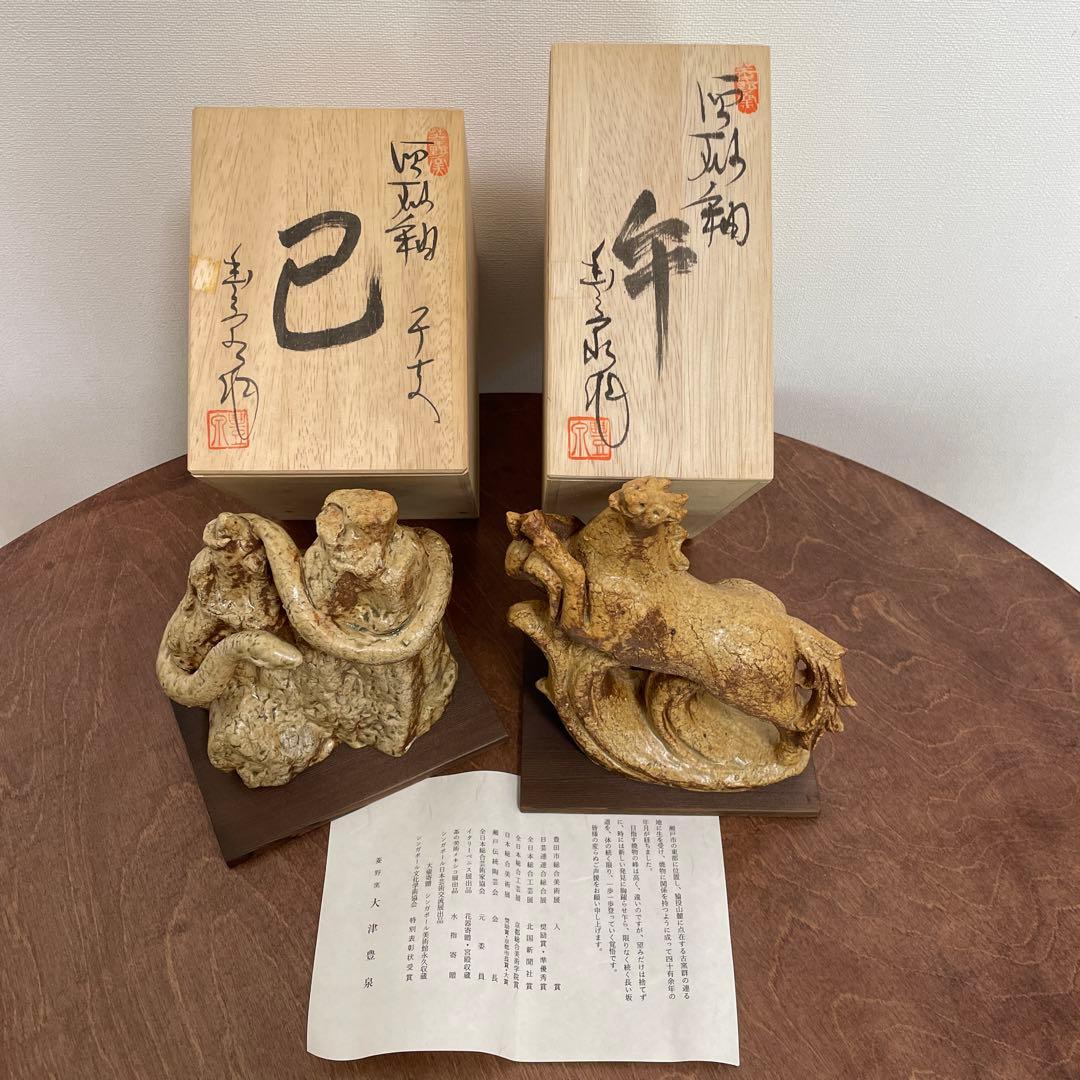 釉
干支
巳
豊泉
釉
午
豊泉
瀬戸市の東部に位置し、猿投山麓に点在する古窯群の連る
地に生を受け、焼物に関係を持つように成って四十有余年の
年月が経ちました。
目指す焼物の峰は高く、遠いのですが、望みだけは捨てず
に、時には新しい発見に胸躍らせ乍ら、限りなく続く長い坂
道を、体の続く限り、一歩一歩登っていく覚悟です。
皆様の変らぬご声援をお願い申し上げます。
豊田市総合美術展 入賞
日芸連連合総合展 奨励賞・準優秀賞
全日本総合工芸展 北国新聞社賞
全日本総合工芸展 京都総合美術学院賞
日本総合美術展 奨励賞・京都市長賞・大賞
瀬戸伝統陶芸会 会長
全日本総合芸術家協会 元委員
イタリーベニス展出品 花器寄贈・宮殿収蔵
茶の美術メキシコ展出品 水指寄贈
シンガポール日本芸術交流展出品
大壷寄贈 シンガポール美術館永久収蔵
シンガポール文化学術協会 特別表彰状受賞
菱野窯 大津豊泉